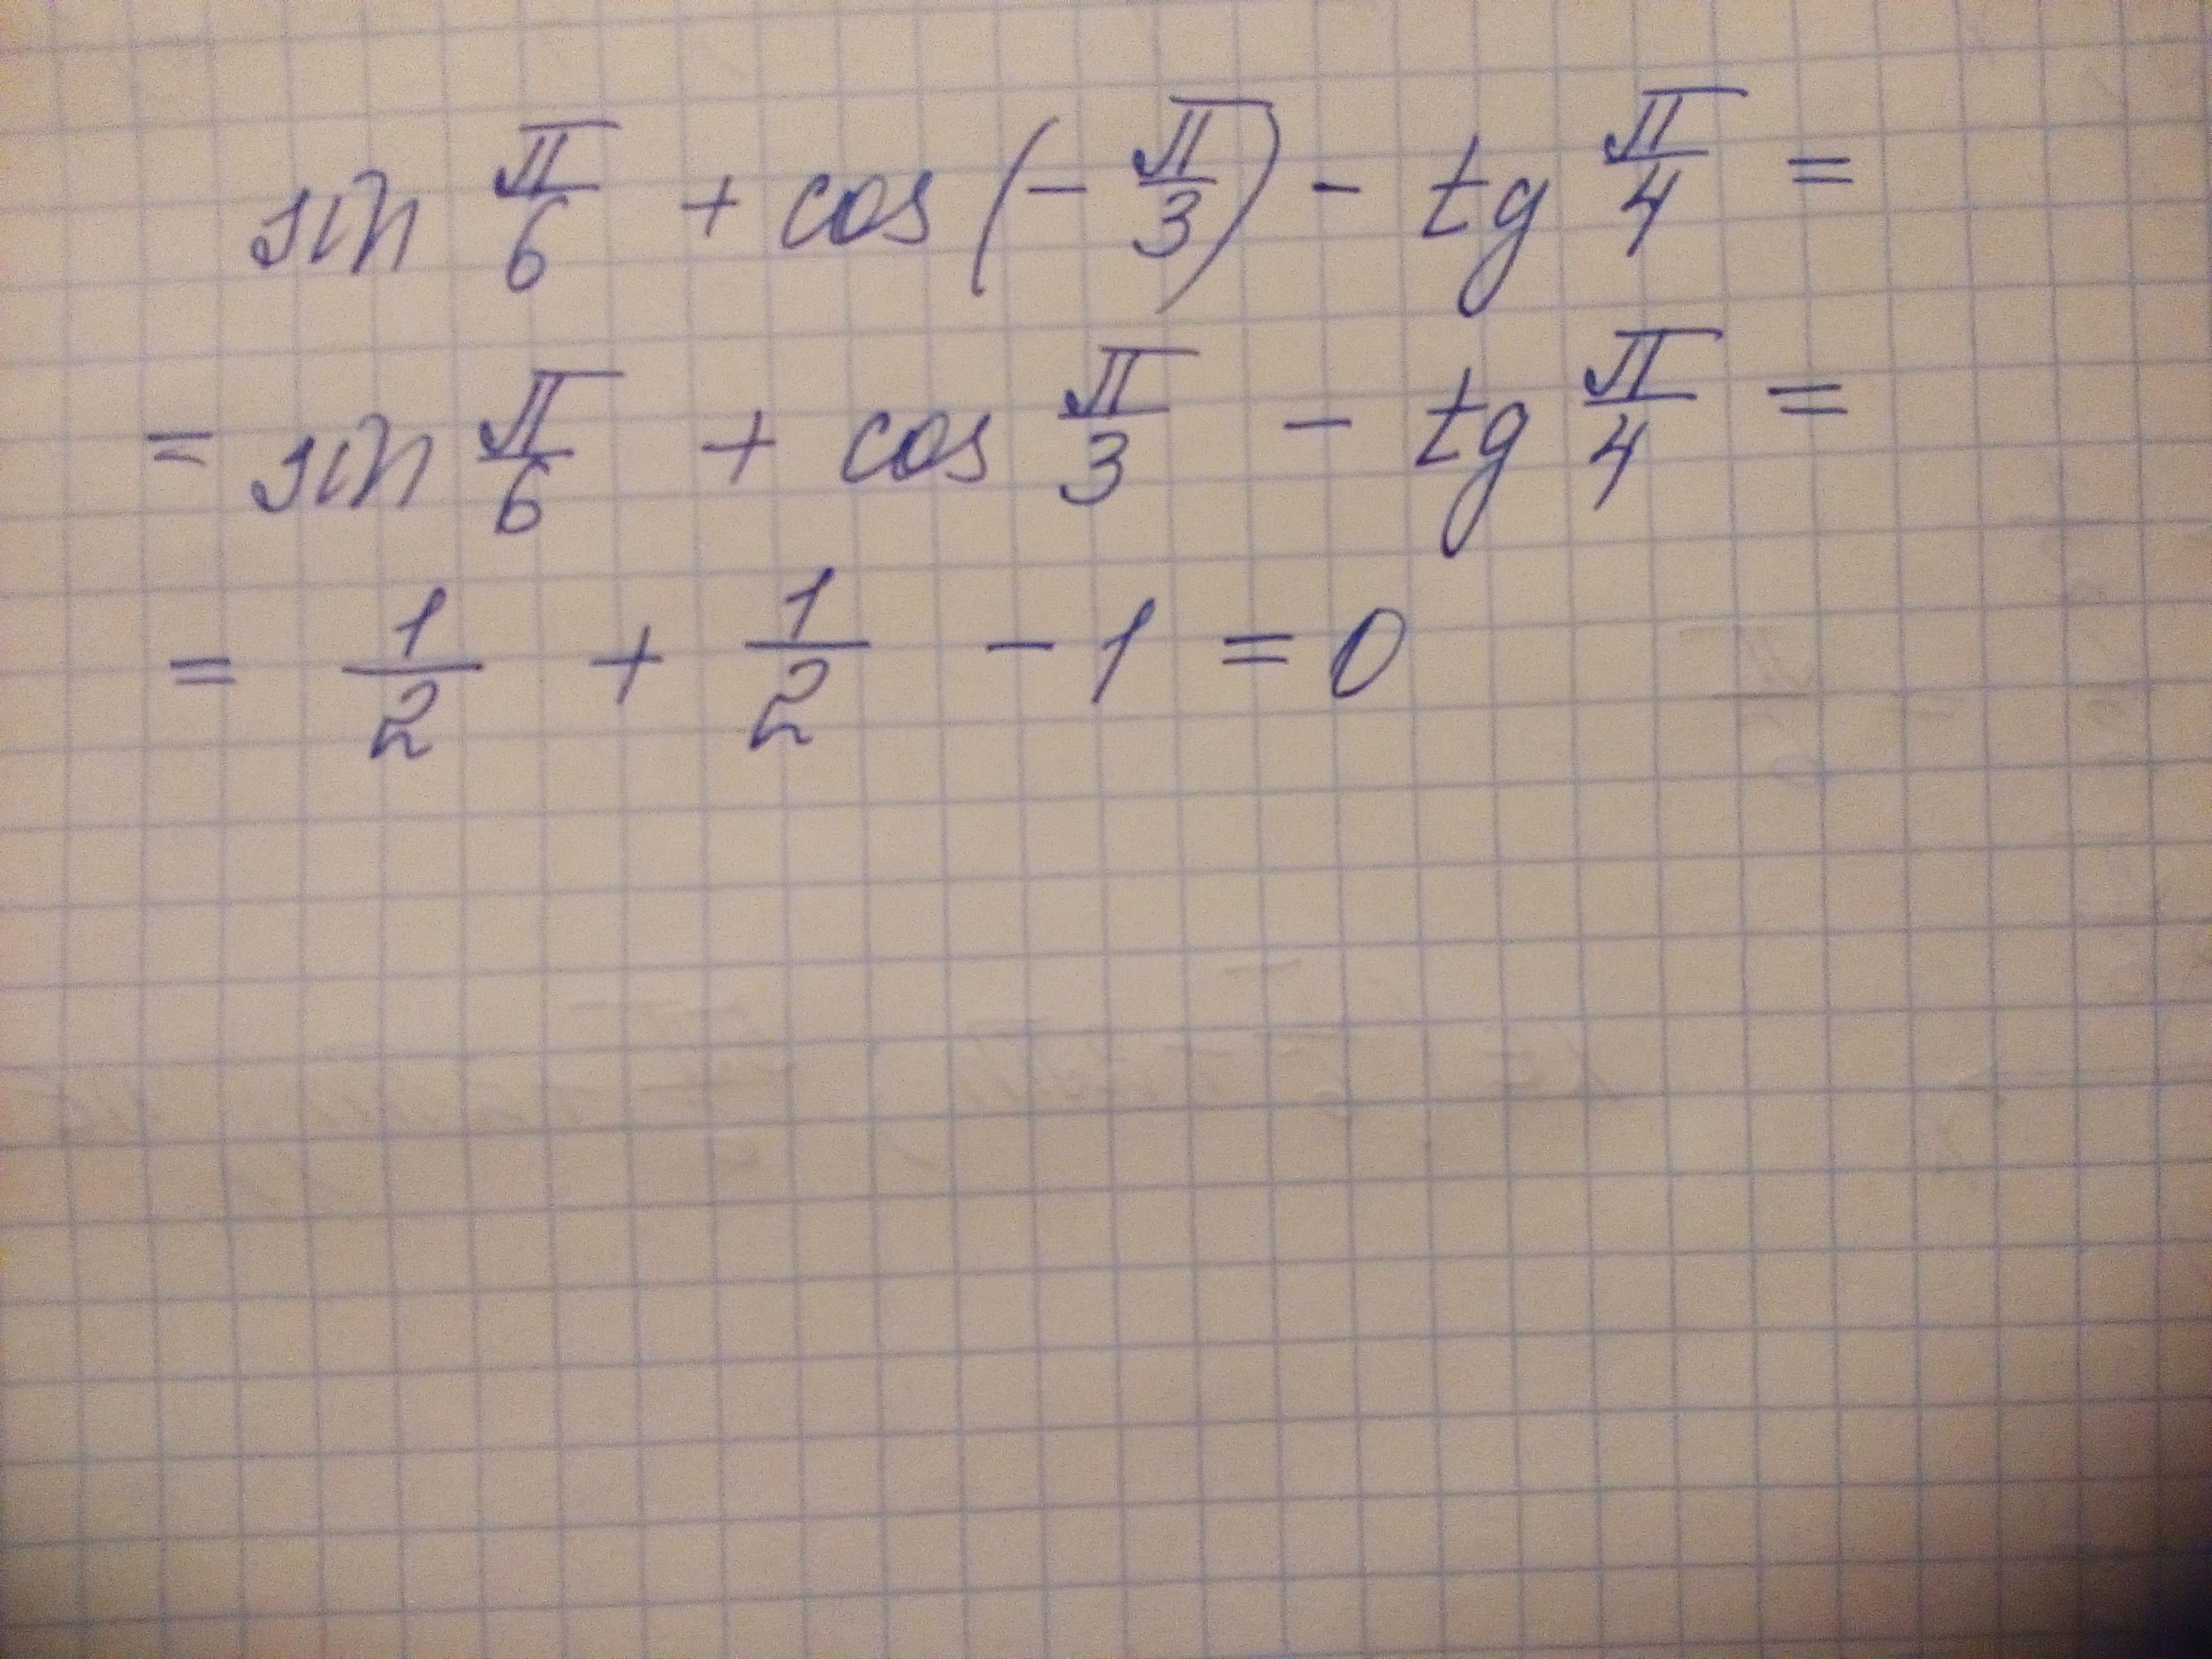 sin π/6 + cos (- π/3) - tg π/4 =
= sin π/6 + cos π/3 - tg π/4 =
= 1/2 + 1/2 - 1 = 0